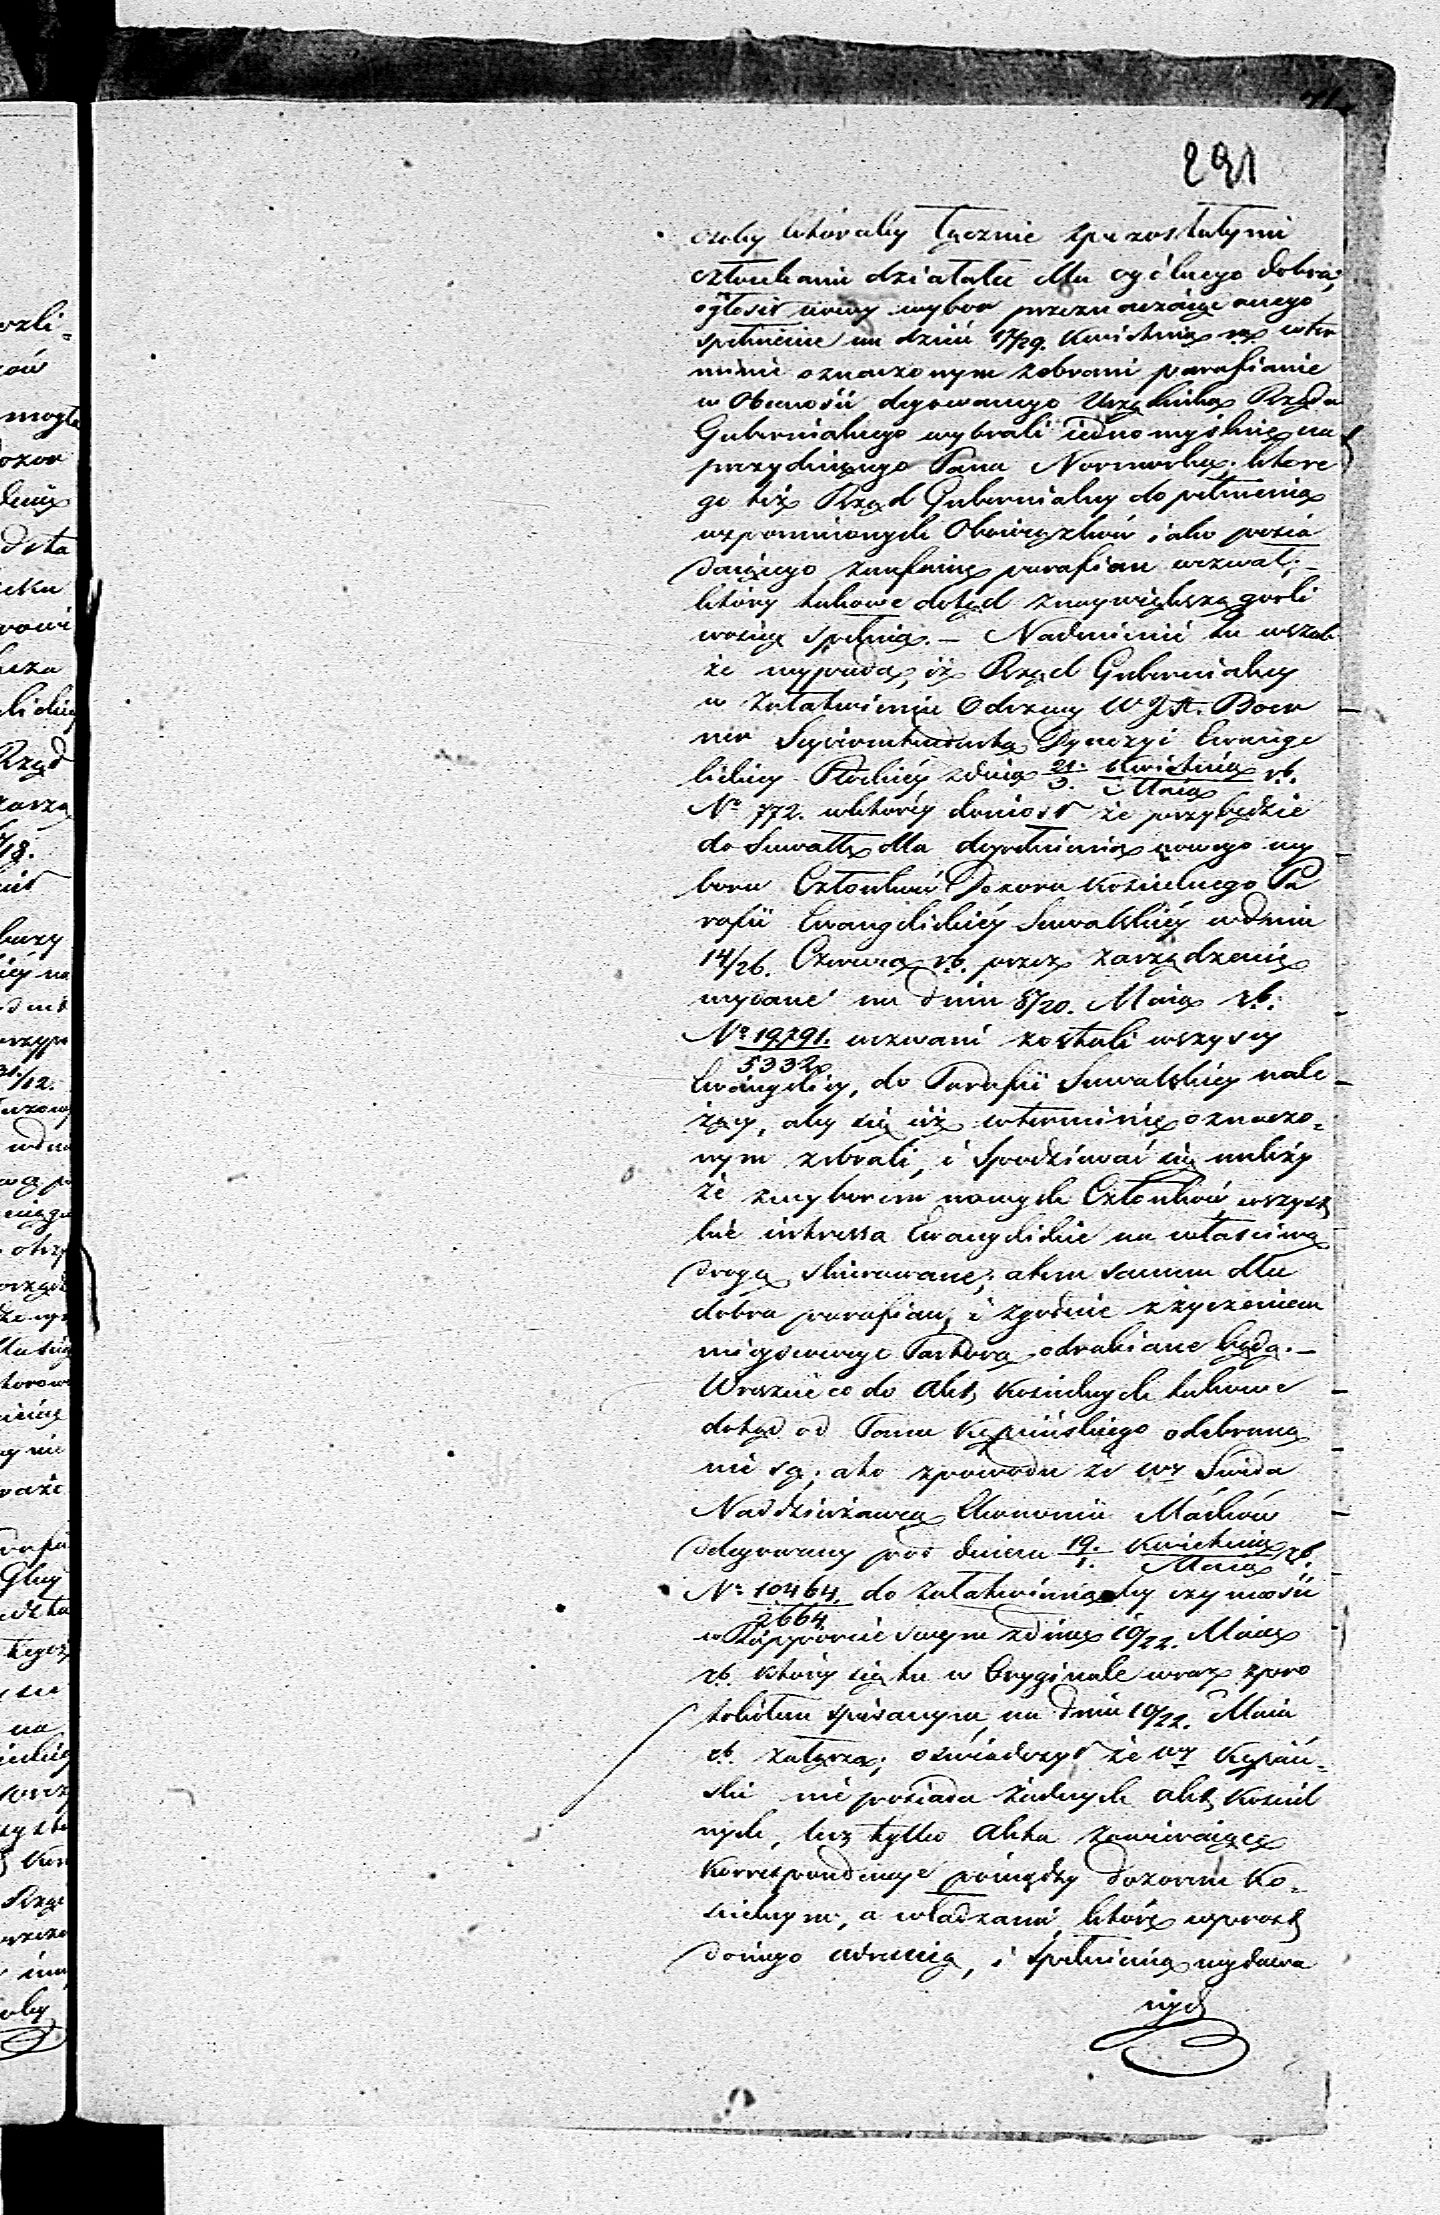 291
osoby któraby łącznie z pozostałymi
członkami działała dla ogólnego dobra,
ogłosił nowy wybor przeznaczaiąc onego
spełnienie na dzień 17/29. Kwietnia rb w ter
minie oznaczonym zebrani parafianie
w Obecności delegowanego Urzędnika Rządu
Gubernialnego wybrali iednomyślnie na
prezyduiącego Pana Normarka, które
go też Rząd Gubernialny do pełnienia
wspomnionych Obowiązków iako posia
daiącego zaufanie parafian wezwał;–
który takowe dotąd z naywiększą gorli
wością spełnia.– Nadmienić tu wszak
że wypada, iż Rząd Gubernialny
w załatwieniu Odezwy WJX. Boer
ner Superintendenta Dyecezyi Ewange
lickiey Płockiéy z dnia 21./3. Kwietnia/Maia rb.
No 772. w któréy doniósł że przybędzie
do Suwałk dla dopełnienia nowego wy
boru Członków Dozoru Kościelnego Pa
rafii Ewangelickiéy Suwalskiéy w dniu
14/26. Czerwca rb. przez zarządzenie
wydane na dniu 8/20. Maia rb.
No 19,791./5332 wezwani zostali wszyscy
Ewangelicy, do Parafii Suwalskiey nale
żący, aby się iuż w terminie oznaczo=
nym zebrali, i spodziewać się należy
że z wyborem nowych Członków wszyst
kie interessa Ewangelickie na właściwą
drogę skierowane; a tem samem dla
dobra parafian, i zgodnie z życzeniem
mieyscowego Pastora odrabiane będą.–
Wreszcie co do Akt Kościelnych takowe
dotąd od Pana Kępińskiego odebrane
nie są; a to z powodu że Wy Świda
Naddzierżawca Ekonomii
delegowany pod dniem 19./1. Kwietnia/Maia rb.
No 10464./2664 do załatwienia téy czynności
w Rapporcie swym z dnia 10/22. Maia
rb. który się tu w Oryginale wraz z pro
tokółem spisanym na dniu 10/22. Maia
rb. załącza; oświadczył że Wy Kępiń=
ski nie posiada żadnych akt Kościel
nych, lecz tylko Akta zawieraiące
Korrespondencye pomiędzy Dozorem Ko=
ścielnym, a władzami, które wprost
do niego i spełnienia wydawa
nych